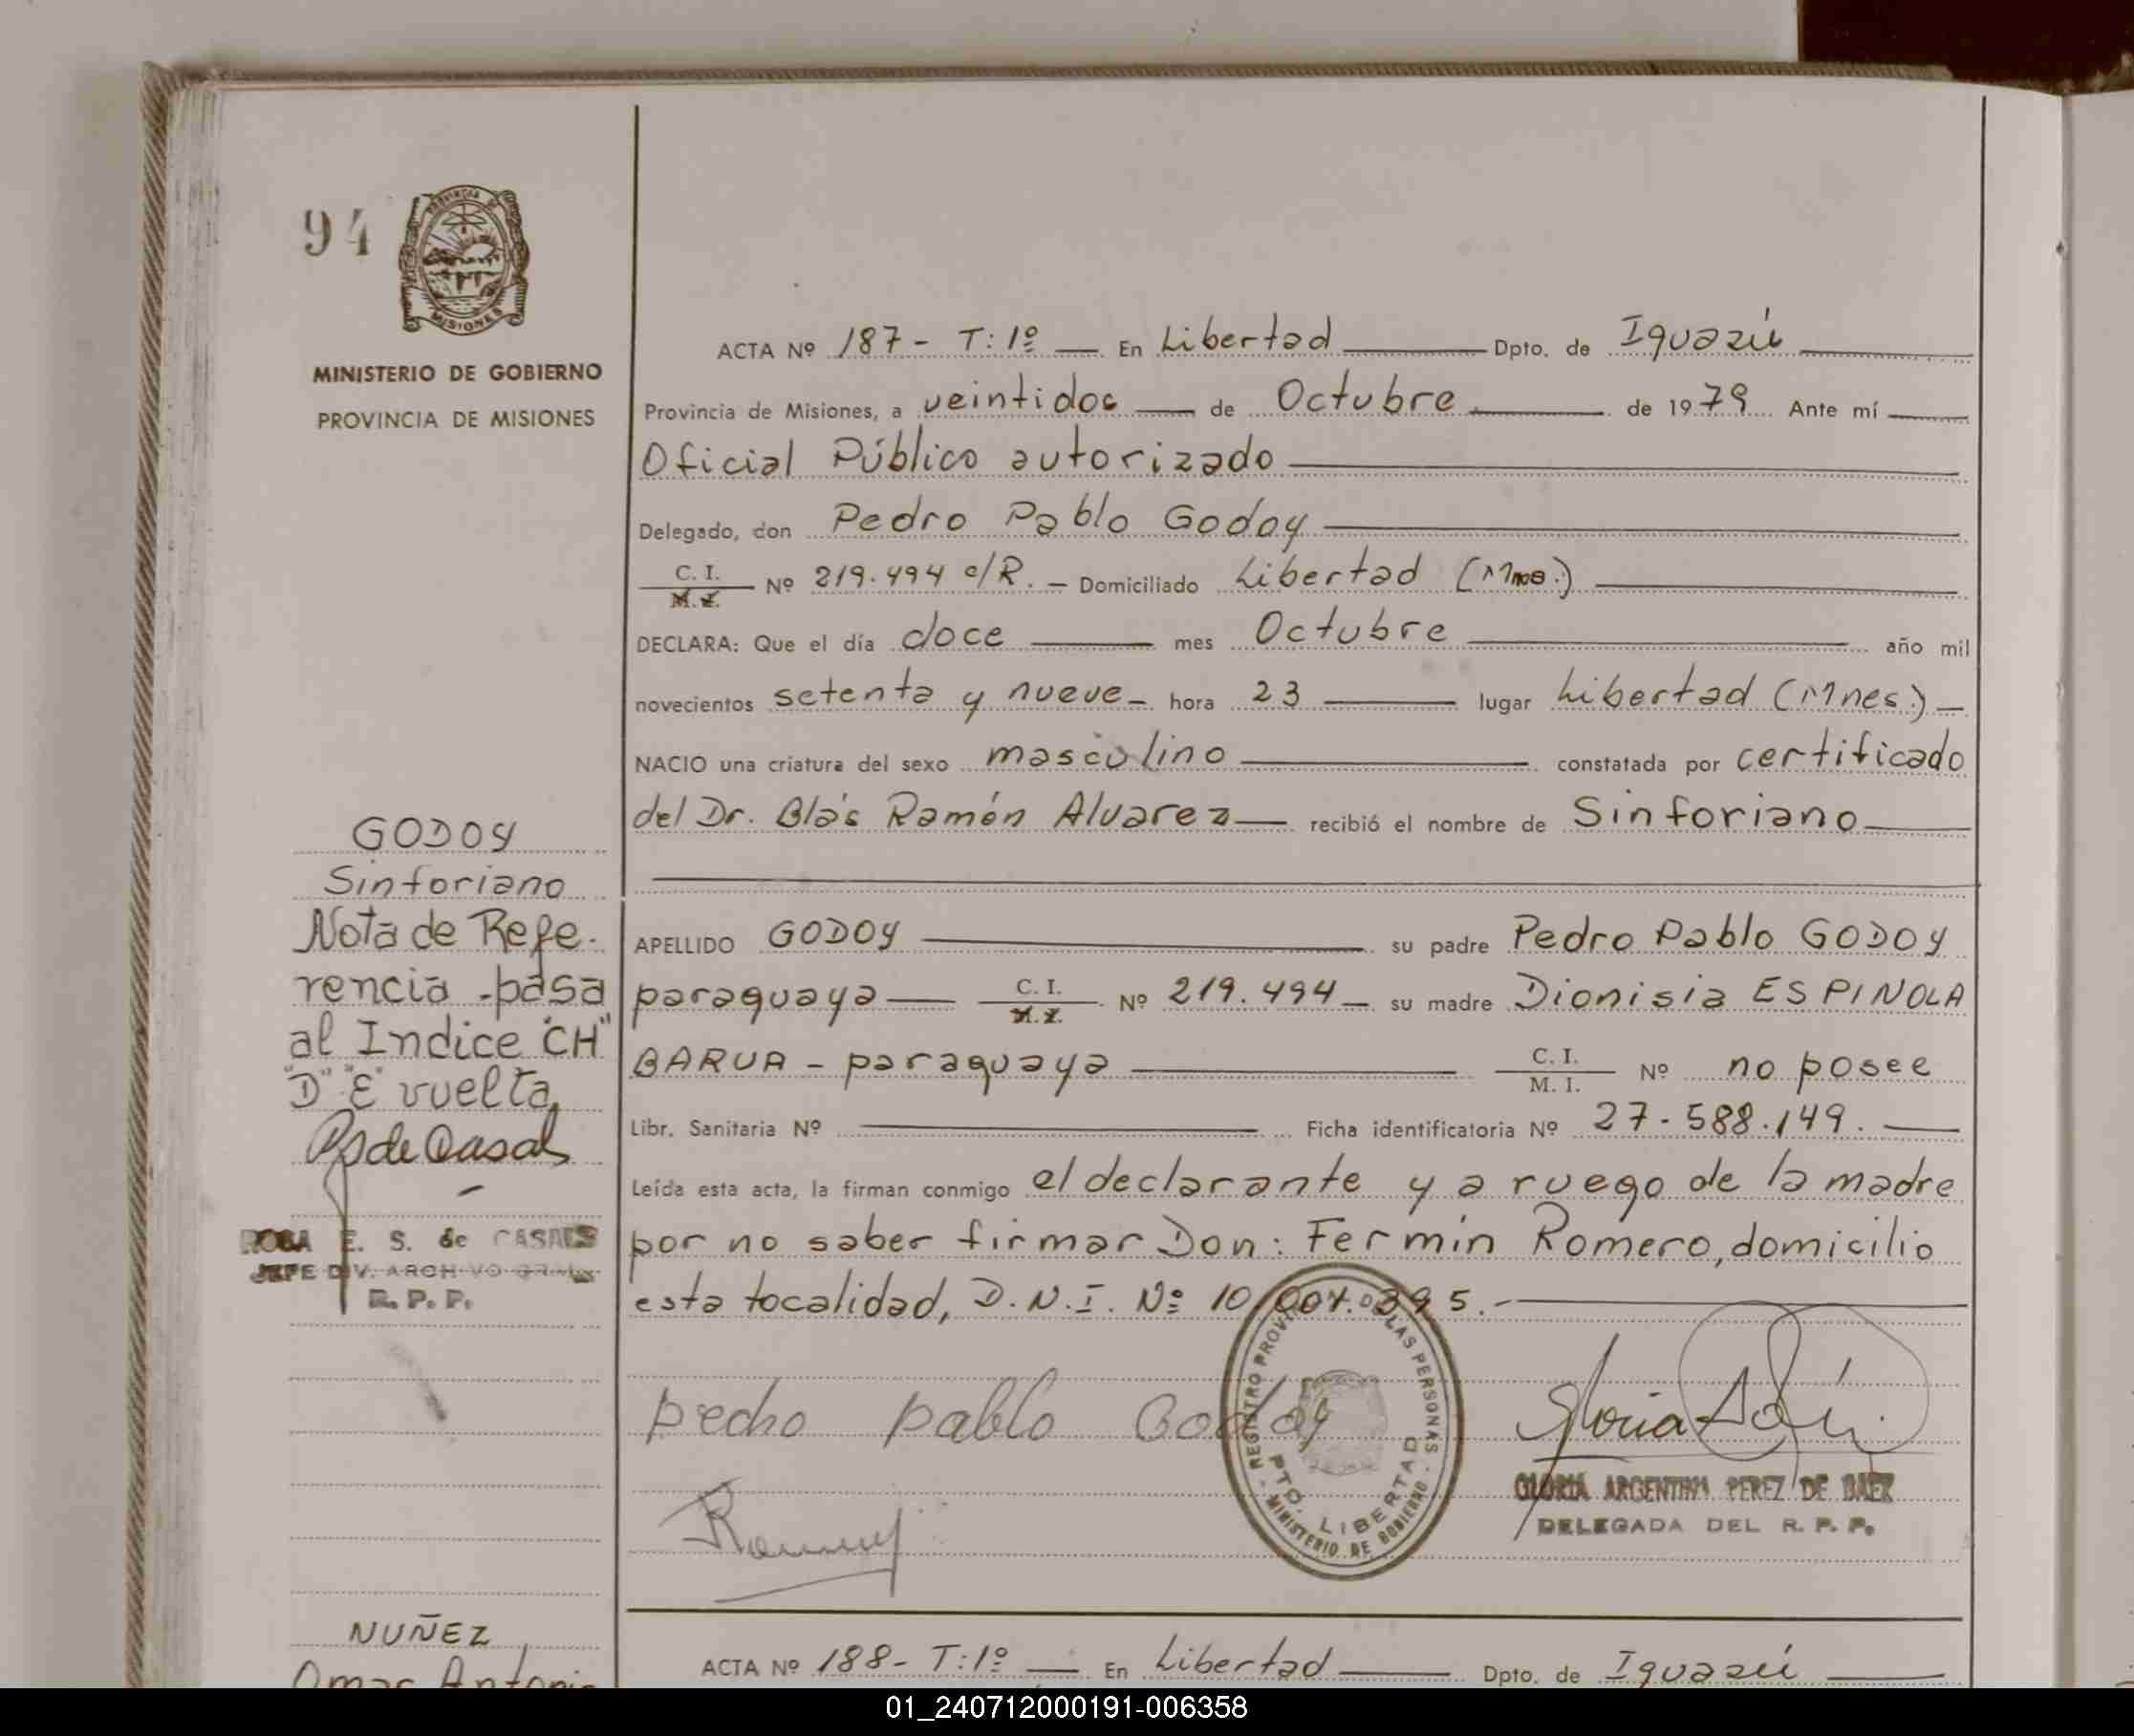 94
PROVINCIA DE
MISIONES
MINISTERIO DE GOBIERNO
PROVINCIA DE MISIONES
ACTA Nº 187 - T: 1º — En Libertad — Dpto. de Iguazú —
Provincia de Misiones, a veintidos — de Octubre — de 1979 Ante mí —
Oficial Público autorizado —
Delegado, don Pedro Pablo Godoy —
C. I. M. I. Nº 219.494 c/R. — Domiciliado Libertad (Mnes.) —
DECLARA: Que el día doce — mes Octubre — año mil
novecientos setenta y nueve — hora 23 — lugar Libertad (Mnes.) —
NACIO una criatura del sexo masculino — constatada por certificado
del Dr. Blás Ramón Alvarez — recibió el nombre de Sinforiano —
GODOY
Sinforiano
Nota de Refe-
rencia - pasa
al Indice "CH"
"D" "E" vuelta
ROSA E. S. de CASALS
JEFE DIV. ARCHIVO GRAL.
R. P. P.
APELLIDO GODOY — su padre Pedro Pablo GODOY
paraguaya — C. I. M. I. Nº 219.494 — su madre Dionisia ESPINOLA
BARUA - paraguaya — C. I. M. I. Nº no posee
Libr. Sanitaria Nº — Ficha identificatoria Nº 27.588.149. —
Leída esta acta, la firman conmigo el declarante y a ruego de la madre
por no saber firmar Don: Fermín Romero, domicilio
esta localidad, D.N.I. Nº 10.007.395. —
pedro pablo Godoy
REGISTRO PROVINCIAL DE LAS PERSONAS
PTO. LIBERTAD
- MINISTERIO DE GOBIERNO -
GLORIA ARGENTINA PEREZ DE BAEZ
DELEGADA DEL R. P. P.
NUÑEZ
Omar Antonio
ACTA Nº 188 - T: 1º — En Libertad — Dpto. de Iguazú —
01_240712000191-006358